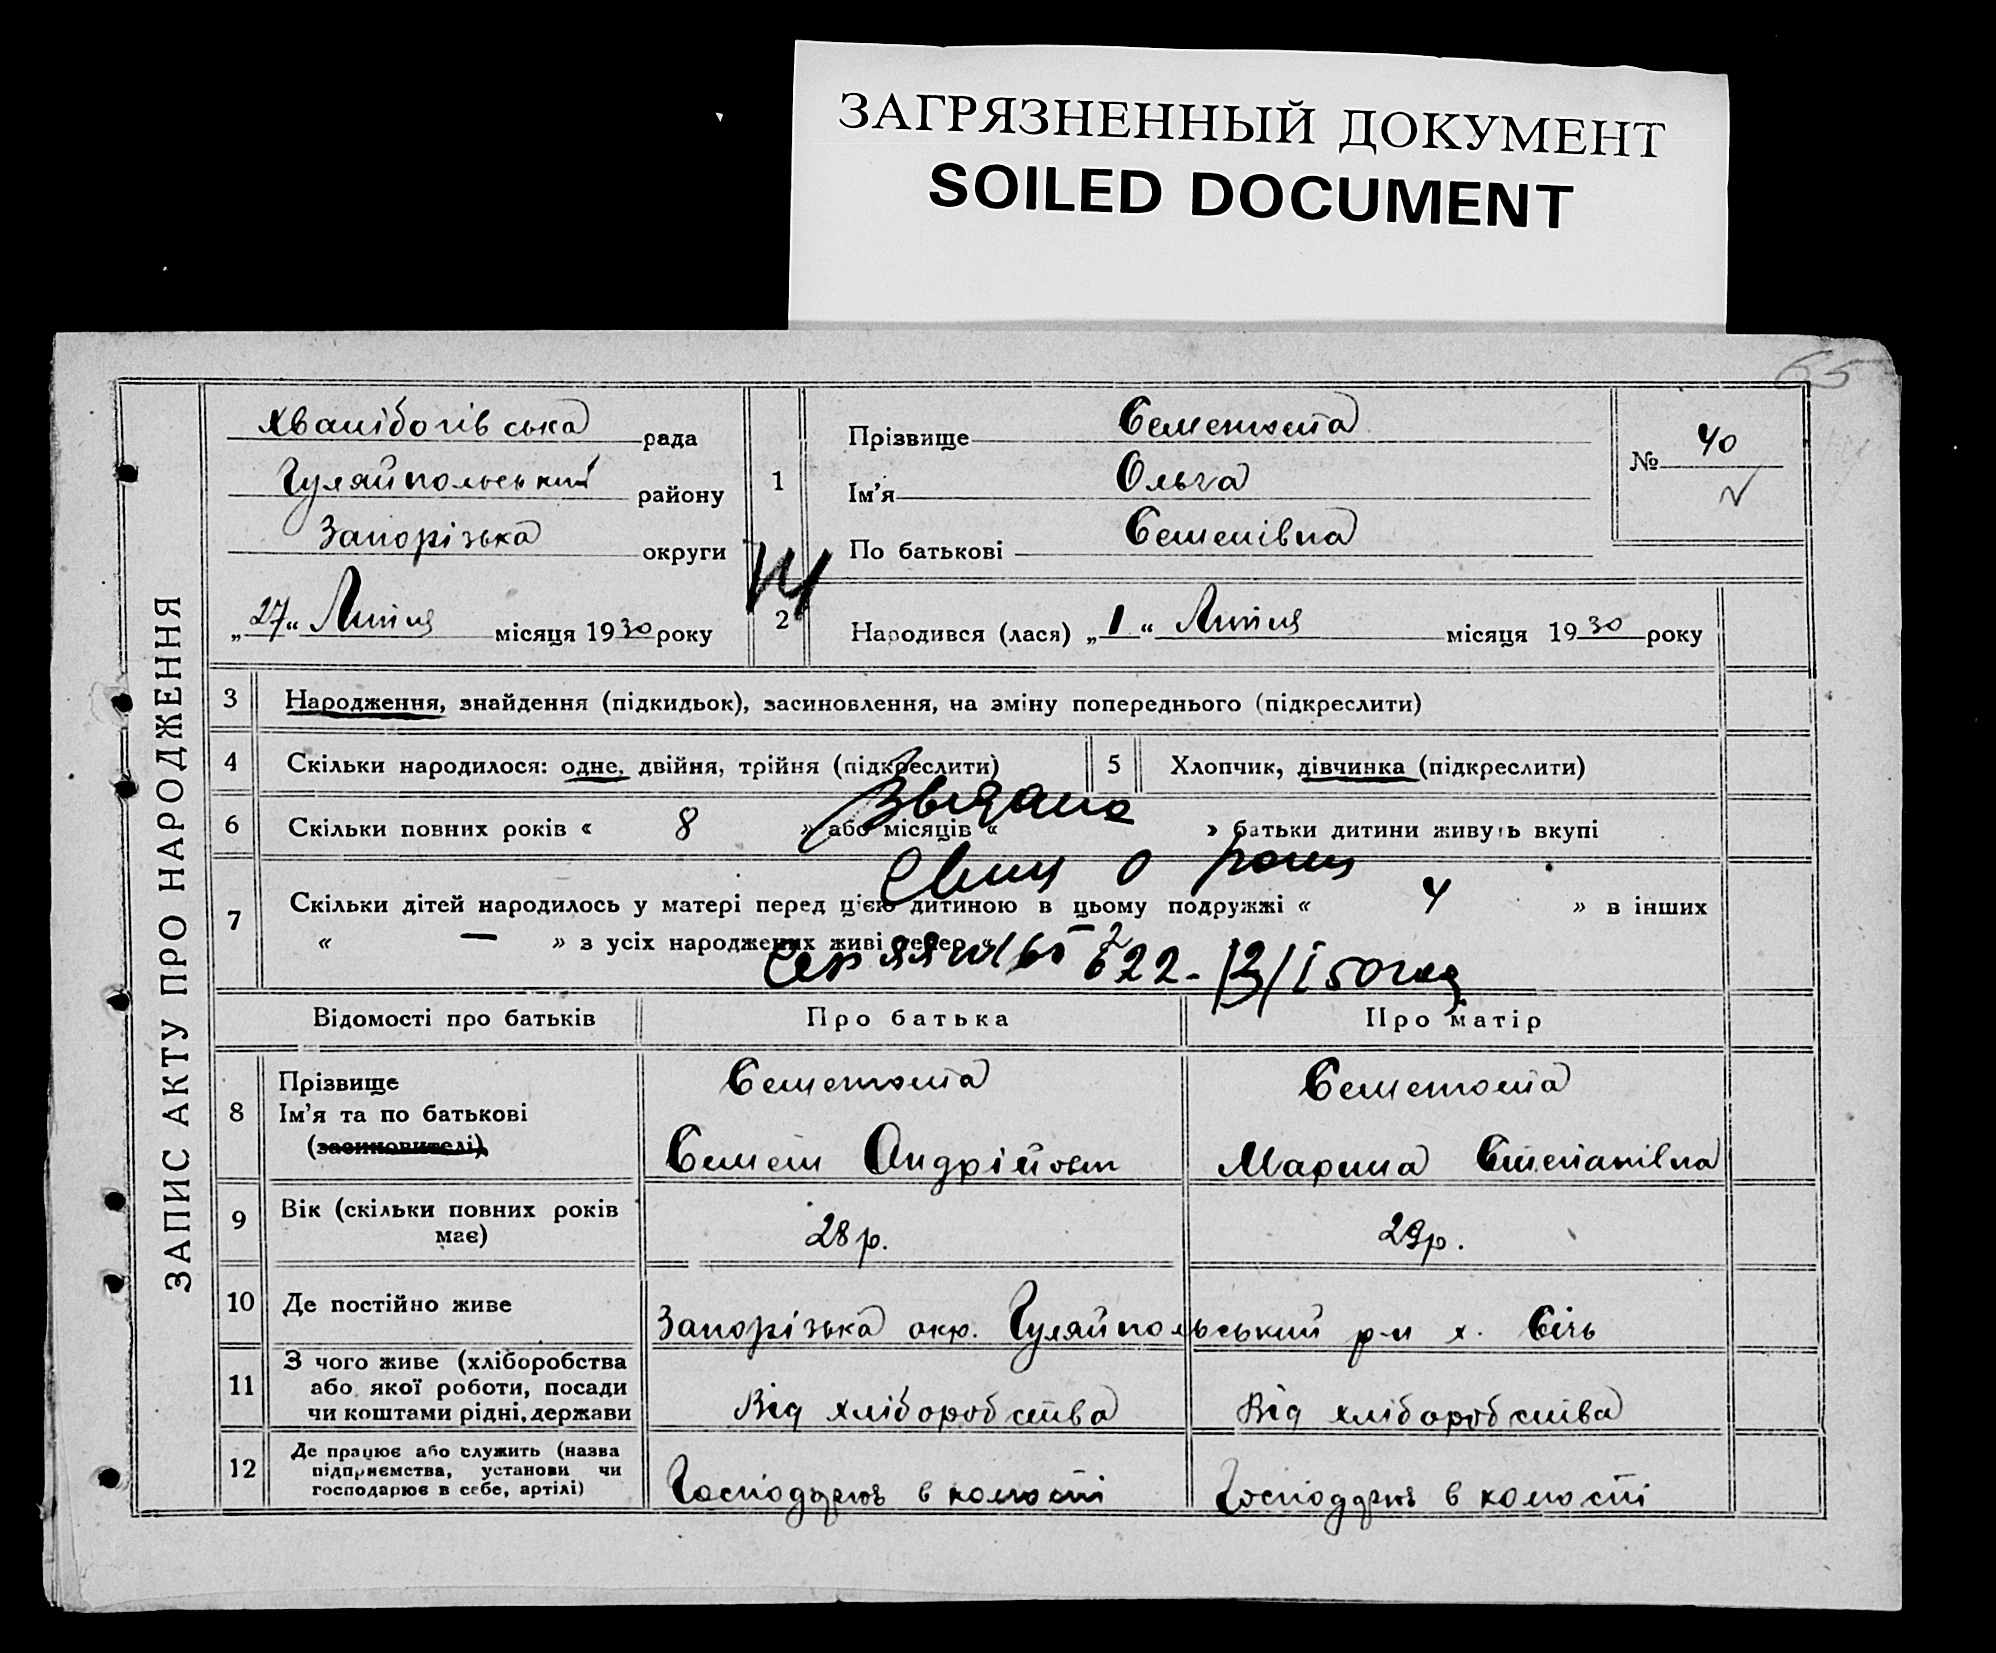 ЗАГРЯЗНЕННЫЙ ДОКУМЕНТ
SOILED DOCUMENT
65
ЗАПИС АКТУ ПРО НАРОДЖЕННЯ
рада
Гуляйпольський району
Запорізька округи
„27“ Липня місяця 1930 року
1
Прізвище
Ім'я Ольга
По батькові Семенівна
№ 40
2
Народився (лася) „1“ Липня місяця 1930 року
3 Народження, знайдення (підкидьок), засиновлення, на зміну попереднього (підкреслити)
4 Скільки народилося: одне, двійня, трійня (підкреслити)
5 Хлопчик, дівчинка (підкреслити)
6 Скільки повних років « 8 » або місяців « » батьки дитини живуть вкупі
7 Скільки дітей народилось у матері перед цією дитиною в цьому подружжі « 4 » в інших
« — » з усіх народжених живі тепер «
Відомості про батьків Про батька Про матір
8 Прізвище
Ім'я та по батькові
(засиновителі)
Семен Андрійович Марина Степанівна
9 Вік (скільки повних років має) 28 р. 29 р.
10 Де постійно живе Запорізька окр. Гуляйпольський р-н х. Січь
11 З чого живе (хліборобства
або якої роботи, посади
чи коштами рідні, держави
Від хліборобства Від хліборобства
12 Де працює або служить (назва
підприємства, установи чи
господарює в себе, артілі)